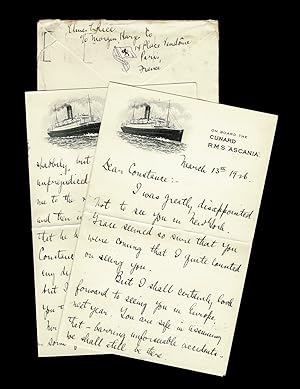 Elmer Rice
c/o Morgan Harjes Co
14 Place Vendôme
Paris,
France
ON BOARD THE
CUNARD
R.M.S. "ASCANIA"
March 13th 1926.
Dear Constance:-
I was greatly disappointed
not to see you in New York.
Grace seemed so sure that you
were coming that I quite counted
on seeing you.
But I shall certainly look
forward to seeing you in Europe
next year. You are safe in assuming
that - barring unforeseeable accidents -
we shall still be there
but
unprejudiced
me to the
and then
let he
Constance
my de
but I
you